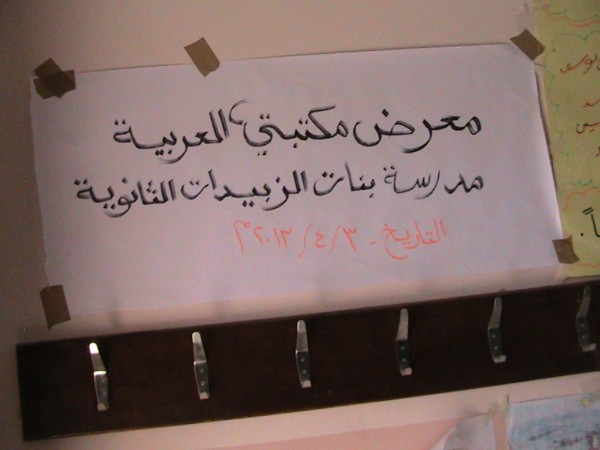 معرض مكتبتي العربية
مدرسة بنات الزبيدات الثانوية
التاريخ - ٣ / ٤ / ٢٠١٣ م